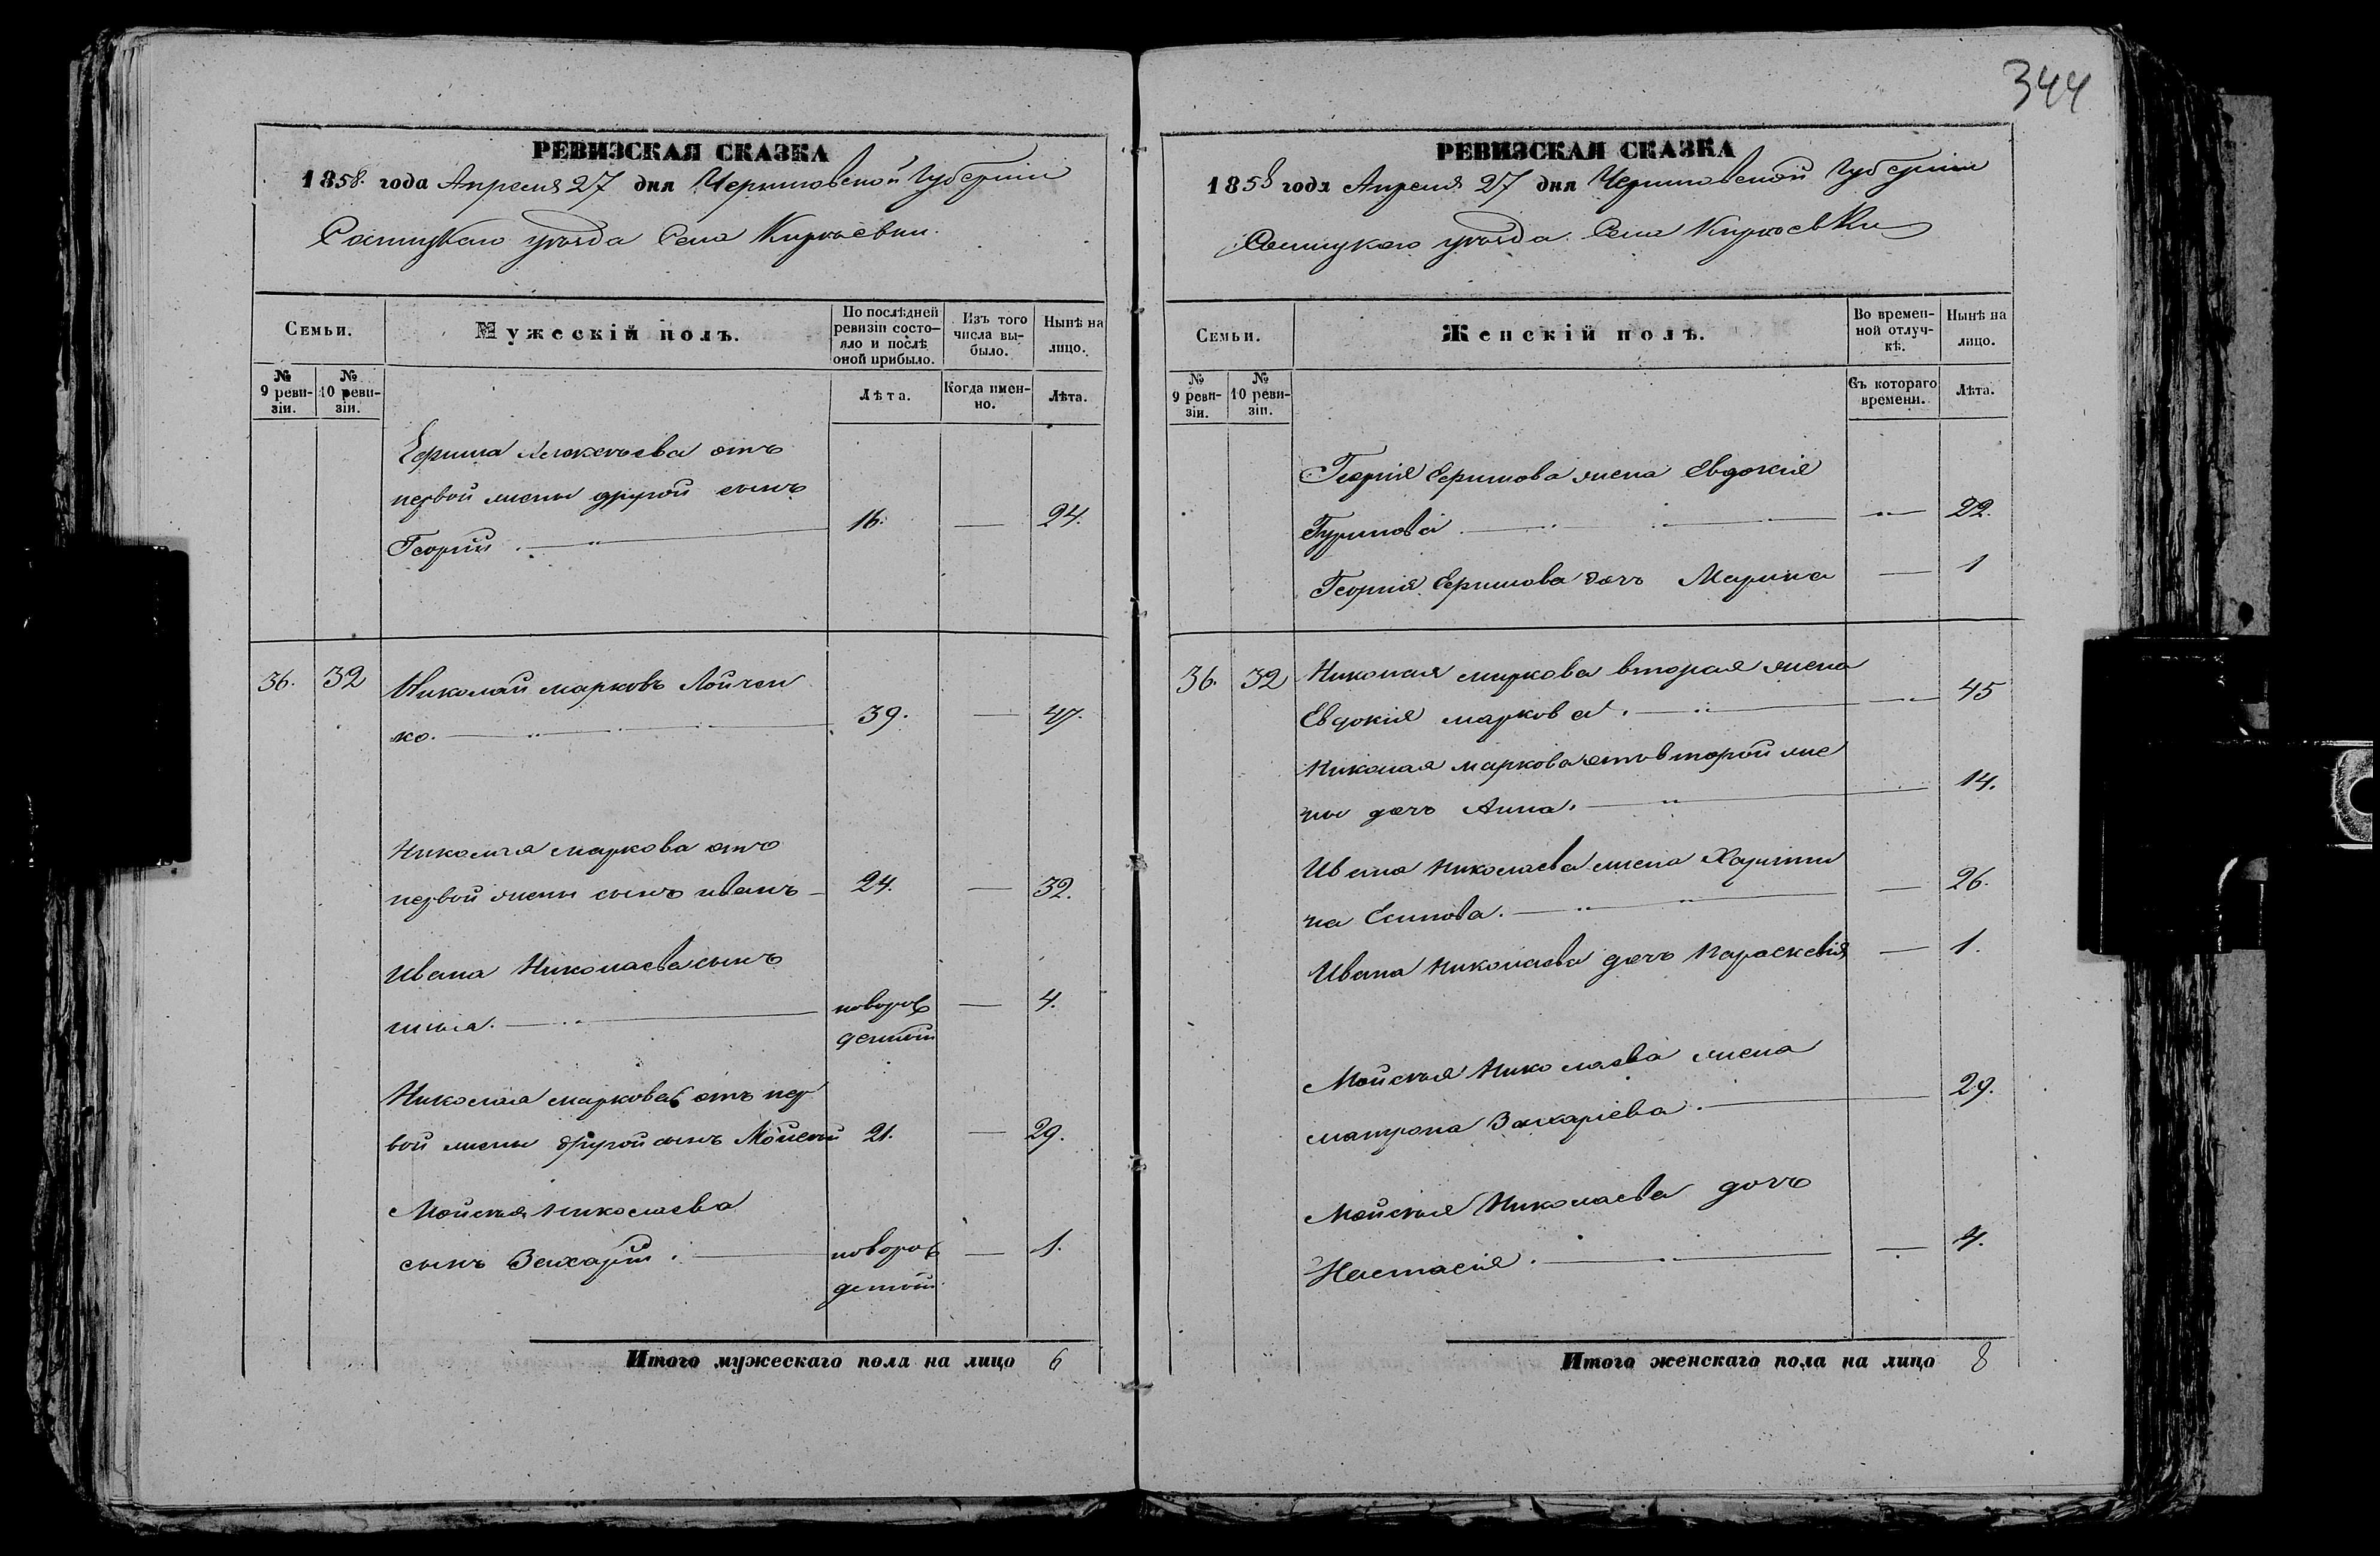 344
РЕВИЗСКАЯ СКАЗКА
1858. года Апреля 27 дня Черниговской Губерніи
Сосницкаго уѣзда Села Кирѣевки.
Семьи.
Мужескій полъ.
По послѣдней ревизіи состо-
яло и послѣ оной прибыло.
Изъ того числа вы-
было.
Нынѣ на лицо.
№ 9 реви-
зіи.
№ 10 реви-
зіи.
Лѣта.
Когда имен-
но.
Лѣта.
Ефима отъ
первой жены другой сынъ
Георгій . — 16. — 24.
36. 32 Николай марковъ Лойчен
ко. — 39. — 47.
Николая маркова отъ
первой жены сынъ иванъ — 24. — 32.
Ивана Николаева сынъ
— новорож — 4.
денный
Николая маркова отъ пер
вой жены другой сынъ Мойсей 21. — 29.
Мойсея Николаева
сынъ Захарій . — новорож — 1.
денный
Итого мужескаго пола на лицо 6
РЕВИЗСКАЯ СКАЗКА
1858 года Апреля 27 дня Черниговской Губерніи
Сосницкаго уѣзда Села Кирѣевки
Семьи.
Женскій полъ.
Во времен-
ной отлуч-
кѣ.
Нынѣ на лицо.
№ 9 реви-
зіи.
№ 10 реви-
зіи.
Съ котораго времени.
Лѣта.
Георгія Ефимова жена Евдокія
— 22.
Георгія Ефимова дочь Марина — 1
36. 32 Николая маркова вторая жена
Евдокія маркова . — 45
Николая маркова отъ второй же
ны дочь Анна. — 14.
Ивана Николаева жена Харити
на Есипова. — 26.
Ивана Николаева дочь Параскевія — 1.
Мойсея Николаева жена
матрона Захаріева . — 29.
Мойсея Николаева дочь
Настасія . — 4.
Итого женскаго пола на лицо 8